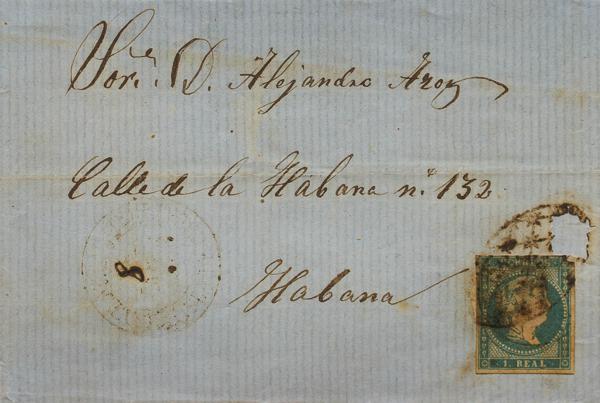 Sor. D. Alejandro Aroz
Calle de la Habana n.º 132
8
Habana
1. REAL